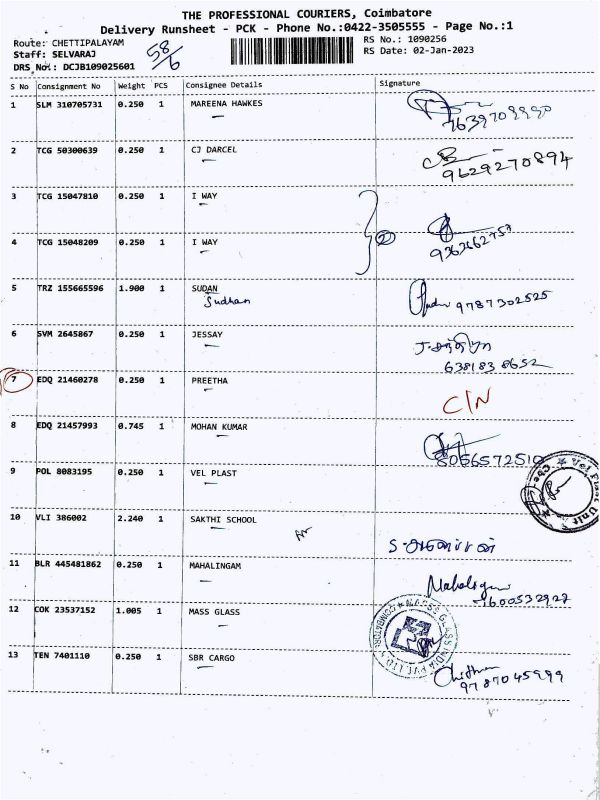 THE PROFESSIONAL COURIERS, Coimbatore
Delivery Runsheet - PCK - Phone No.:0422-3505555 - Page No.:1
Route: CHETTIPALAYAM RS No.: 1090256
Staff: SELVARAJ 58/6 RS Date: 02-Jan-2023
DRS No.: DCJB109025601
S No Consignment No Weight PCS Consignee Details Signature
1 SLM 310705731 0.250 1 MAREENA HAWKES
7639709990
2 TCG 50300639 0.250 1 CJ DARCEL
9629270894
3 TCG 15047810 0.250 1 I WAY
2
4 TCG 15048209 0.250 1 I WAY
5 TRZ 155665596 1.900 1 SUDAN
Sudhan 9787302525
6 SVM 2645867 0.250 1 JESSAY
638183 8652
7 EDQ 21460278 0.250 1 PREETHA
C/N
8 EDQ 21457993 0.745 1 MOHAN KUMAR
8056572510
9 POL 8083195 0.250 1 VEL PLAST
10 VLI 386002 2.240 1 SAKTHI SCHOOL
11 BLR 445481862 0.250 1 MAHALINGAM
Mahalingam
12 COK 23537152 1.005 1 MASS GLASS
13 TEN 7401110 0.250 1 SBR CARGO
9787045999